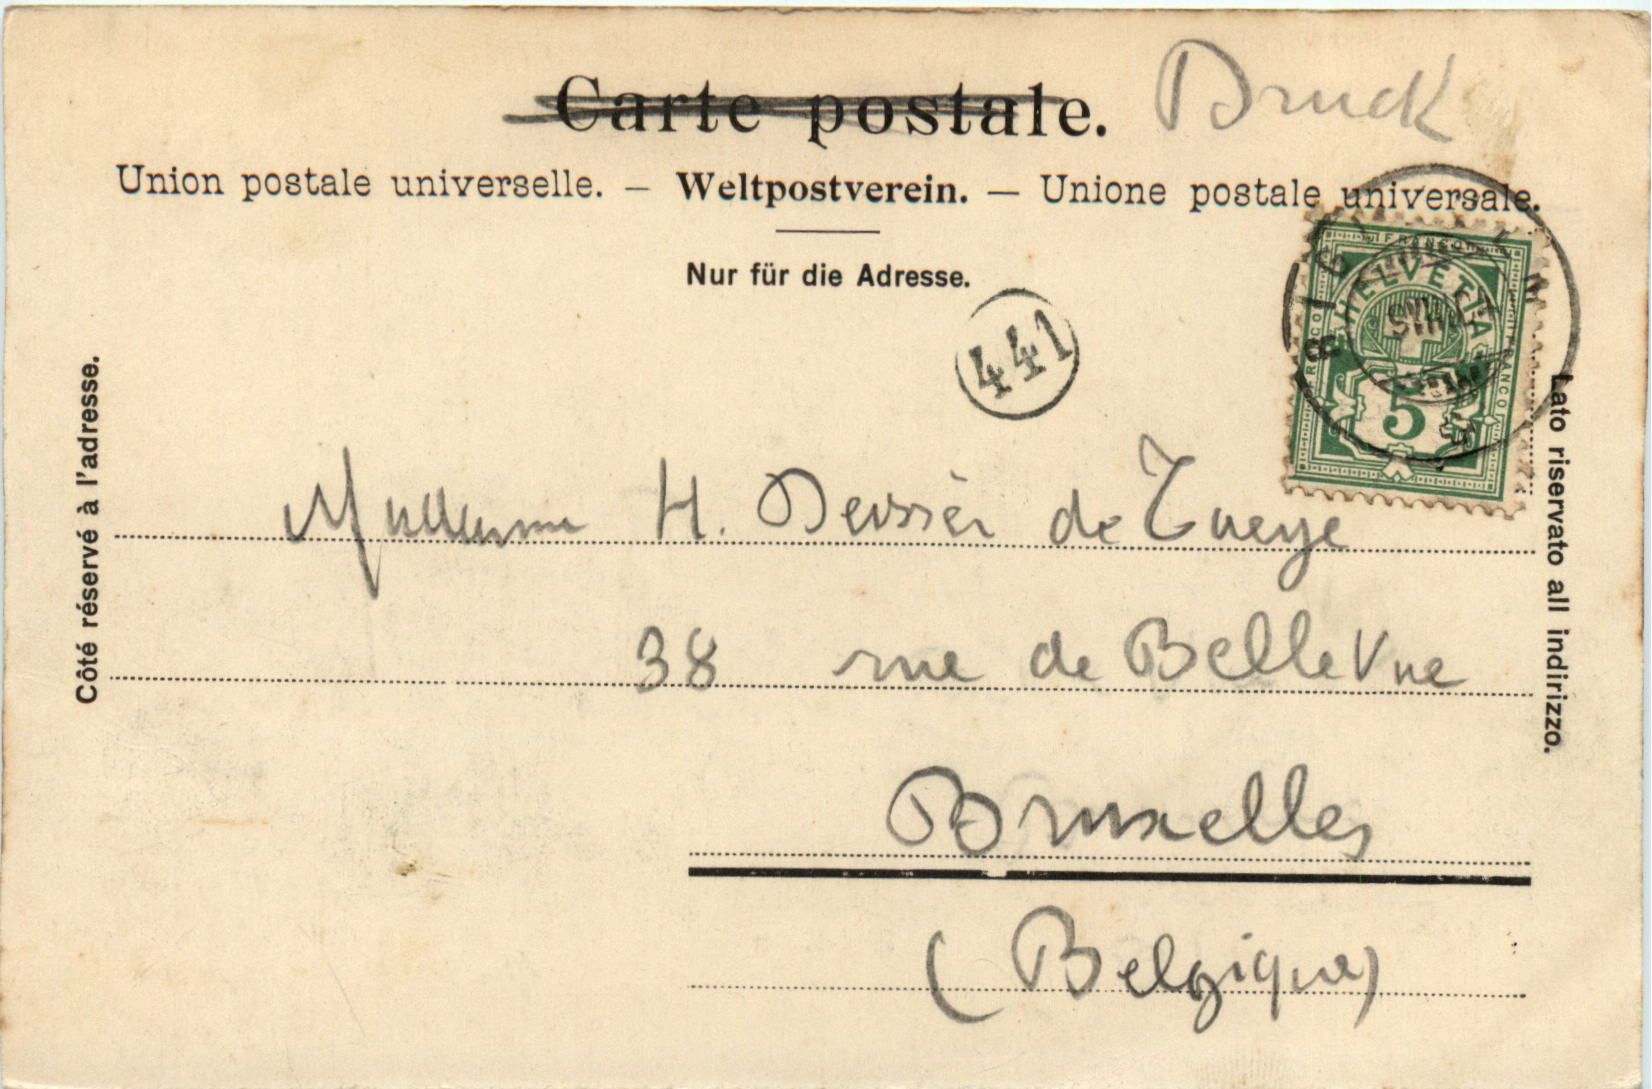 Carte postale. Druck
Union postale universelle. – Weltpostverein. – Unione postale universale.
Nur für die Adresse.
441
FRANCO
HELVETIA
FRANCO
FRANCO
5
Côté réservé à l'adresse.
Lato riservato all indirizzo.
H. de
38 rue de BelleVue
Bruxelles
(Belgique)